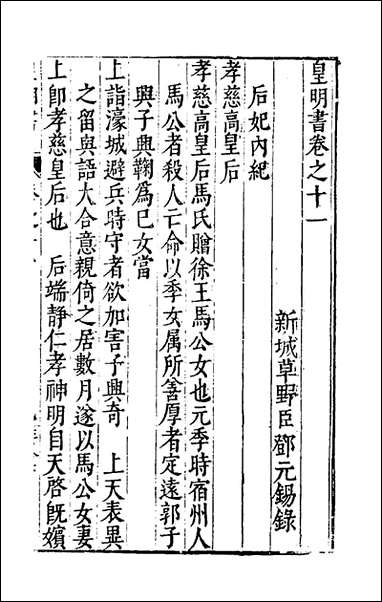 皇明書卷之十一
新城草野臣鄧元錫錄
后妃內紀
孝慈高皇后
孝慈高皇后馬氏贈徐王馬公女也元季時宿州人
馬公者殺人亡命以季女属所善厚者定遠郭子
興子興鞠爲巳女當
上詣濠城避兵時守者欲加害子興奇　上天表異
之留與語大合意親倚之居數月遂以馬公女妻
上卽孝慈皇后也　后端靜仁孝神明自天啓旣嬪